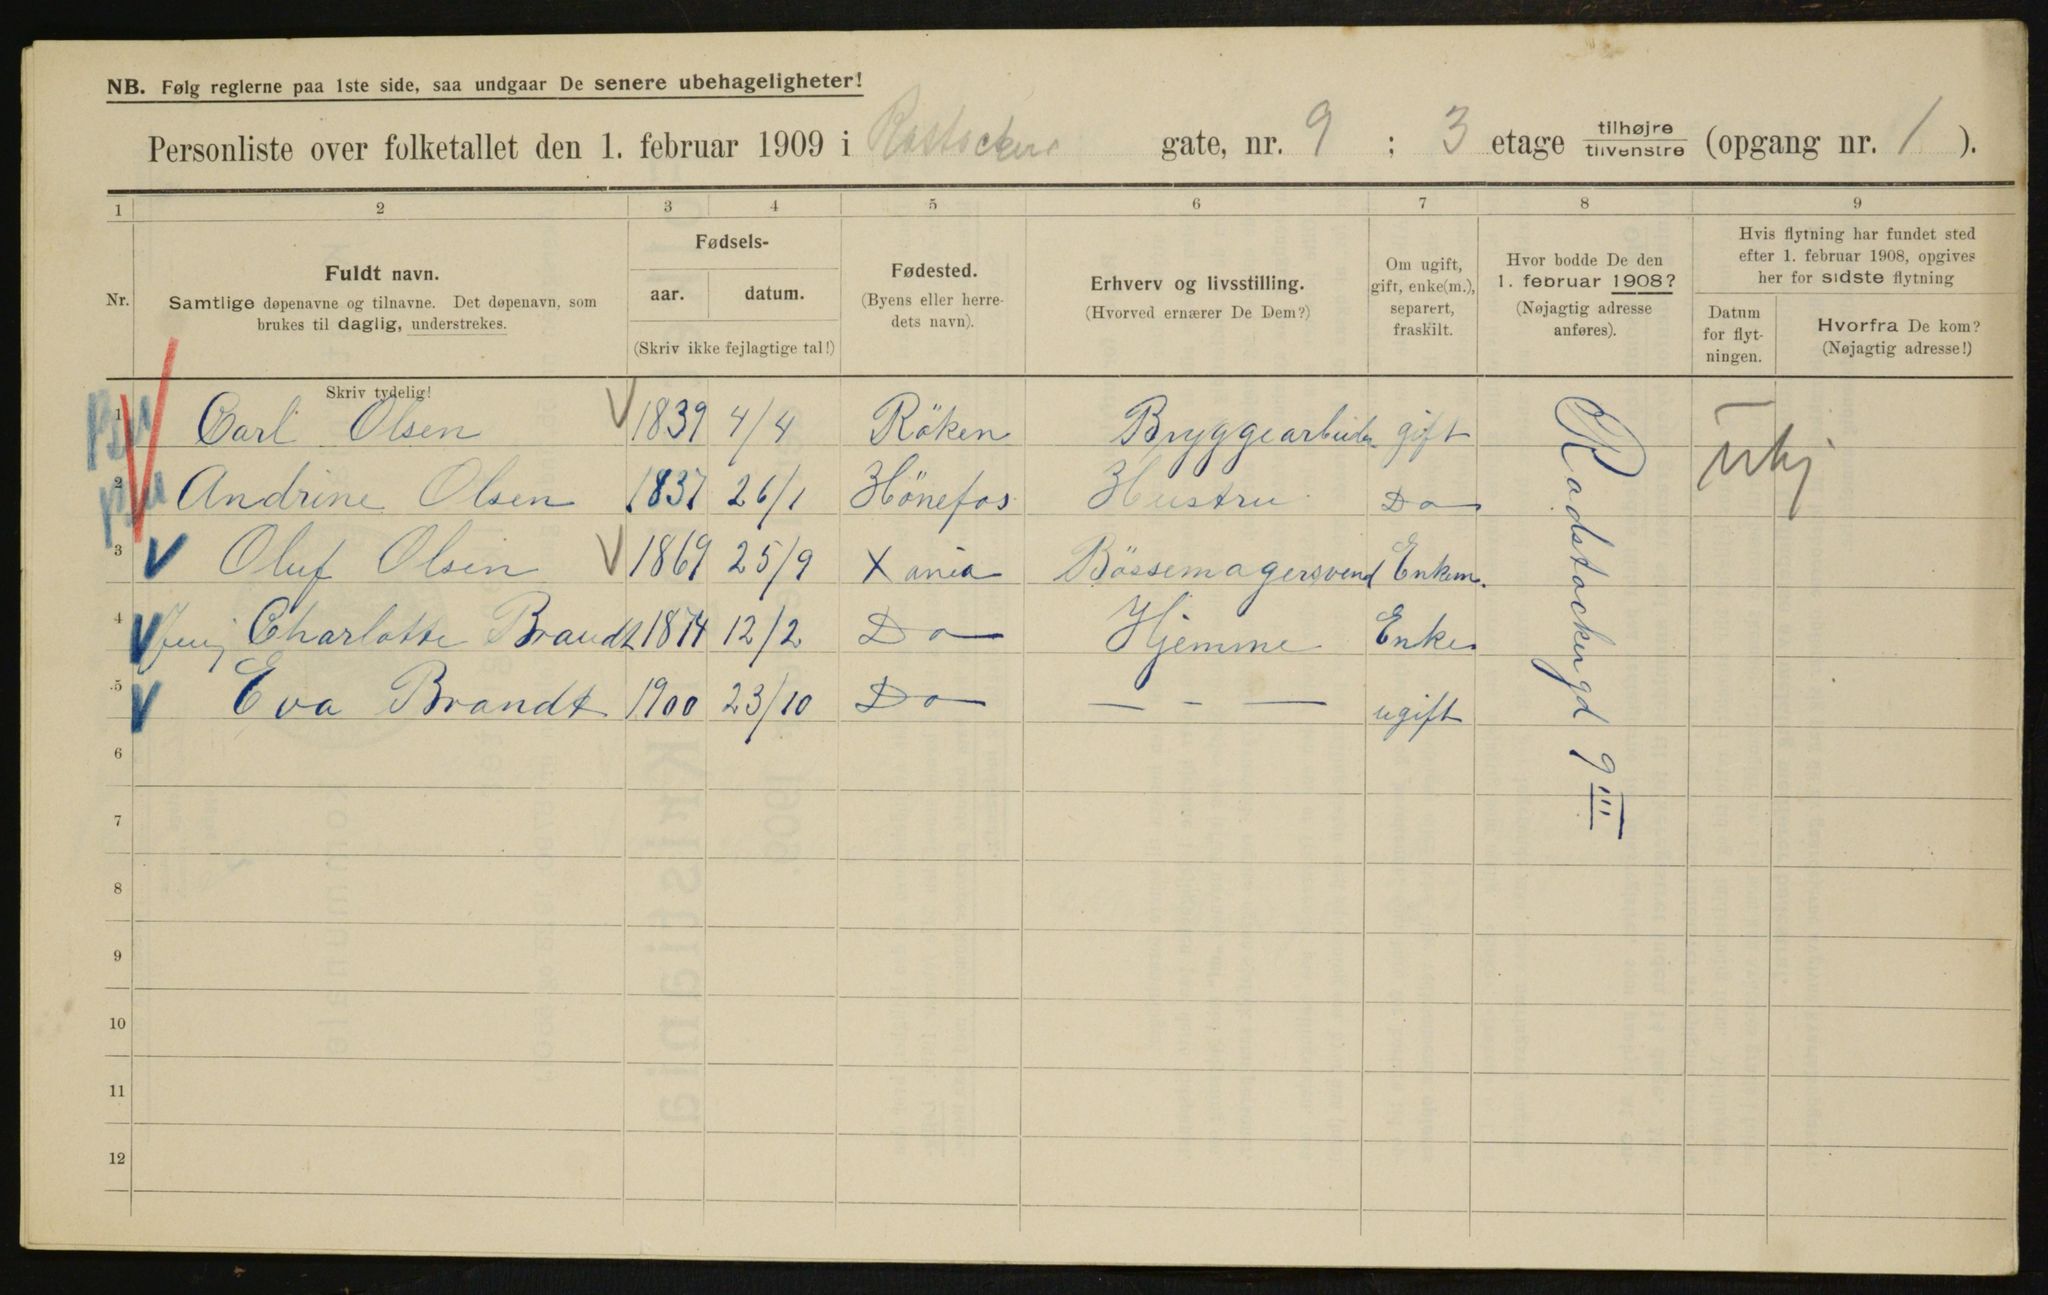 NB. Følg reglerne paa 1ste side, saa undgaar De senere ubehageligheter!
Personliste over folketallet den 1. februar 1909 i Rostockers gate, nr. 9 ; 3 etage tilhøjre/tilvenstre (opgang nr. 1 ).
1 2 3 4 5 6 7 8 9
Nr.
Fuldt navn.
Samtlige døpenavne og tilnavne. Det døpenavn, som
brukes til daglig, understrekes.
Skriv tydelig!
Fødsels-
aar. datum.
(Skriv ikke fejlagtige tal!)
Fødested.
(Byens eller herre-
dets navn).
Erhverv og livsstilling.
(Hvorved ernærer De Dem?)
Om ugift,
gift, enke(m.),
separert,
fraskilt.
Hvor bodde De den
1. februar 1908?
(Nøjagtig adresse
anføres).
Hvis flytning har fundet sted
efter 1. februar 1908, opgives
her for sidste flytning
Datum
for flyt-
ningen.
Hvorfra De kom?
(Nøjagtig adresse!)
1 Carl Olsen 1839 4/4 Röken Bryggearbeider gift
2 Andrine Olsen 1837 26/1 Hönefos Hustru Do
3 Oluf Olsen 1869 25/9 Xania Bössemagersvend Enkem.
4 Charlotte Brandt 1874 12/2 Do Hjemme Enke
5 Eva Brandt 1900 23/10 Do — - — ugift
Radstockergd 9 III
6
7
8
9
10
11
12